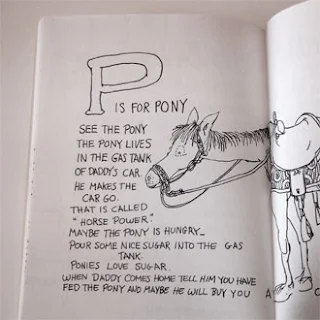 P IS FOR PONY
SEE THE PONY
THE PONY LIVES
IN THE GAS TANK
OF DADDY'S CAR.
HE MAKES THE
CAR GO.
THAT IS CALLED
"HORSE POWER."
MAYBE THE PONY IS HUNGRY_
POUR SOME NICE SUGAR INTO THE GAS
TANK.
PONIES LOVE SUGAR.
WHEN DADDY COMES HOME TELL HIM YOU HAVE
FED THE PONY AND MAYBE HE WILL BUY YOU
A C